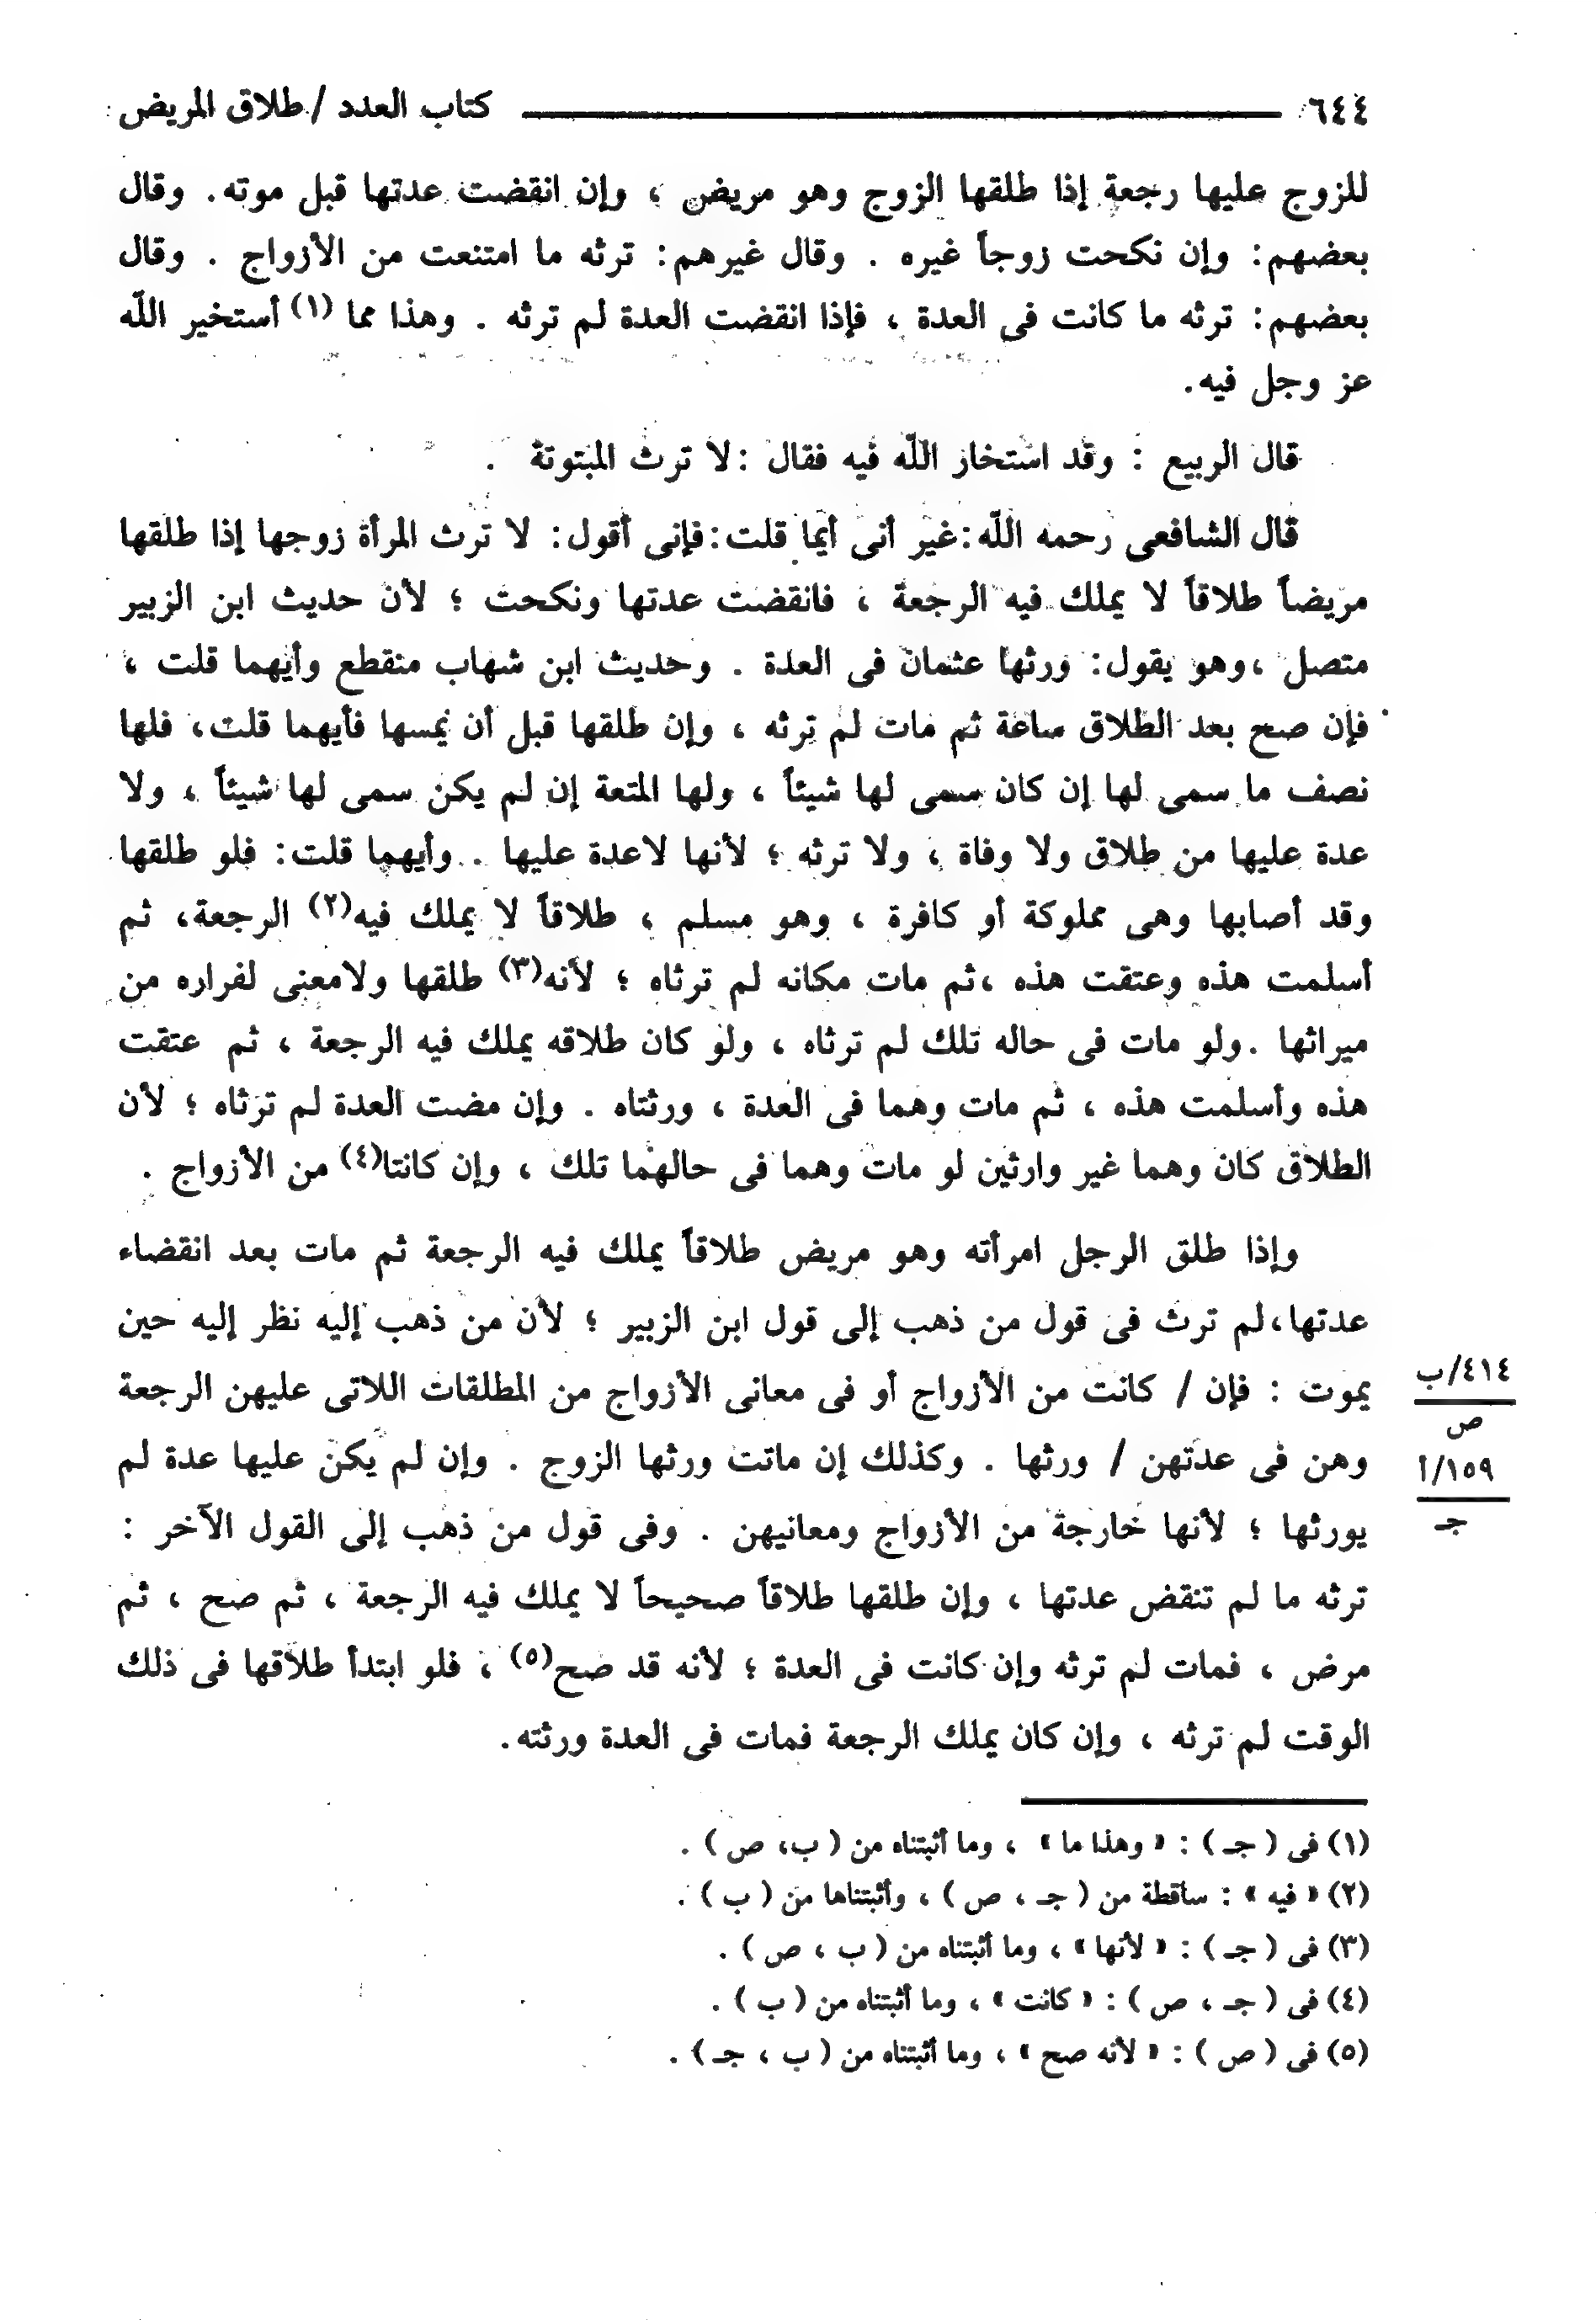 ٦٤٤ كتاب العدد / طلاق المريض
للزوج عليها رجعة إذا طلقها الزوج وهو مريض ، وإن انقضت عدتها قبل موته . وقال
بعضهم : وإن نكحت زوجاً غيره . وقال غيرهم : ترثه ما امتنعت من الأزواج . وقال
بعضهم : ترثه ما كانت فى العدة ، فإذا انقضت العدة لم ترثه . وهذا مما (١) أستخير اللّه
عز وجل فيه .
قال الربيع : وقد استخار اللّه فيه فقال : لا ترث المبتوتة .
قال الشافعى رحمه اللّه : غير أنى أيما قلت : فإنى أقول : لا ترث المرأة زوجها إذا طلقها
مريضاً طلاقاً لا يملك فيه الرجعة ، فانقضت عدتها ونكحت ؛ لأن حديث ابن الزبير
متصل ، وهو يقول : ورثها عثمان فى العدة . وحديث ابن شهاب منقطع وأيهما قلت ،
فإن صح بعد الطلاق ساعة ثم مات لم ترثه ، وإن طلقها قبل أن يمسها فأيهما قلت ، فلها
نصف ما سمى لها إن كان سمى لها شيئاً ، ولها المتعة إن لم يكن سمى لها شيئاً ، ولا
عدة عليها من طلاق ولا وفاة ، ولا ترثه ؛ لأنها لاعدة عليها . وأيهما قلت : فلو طلقها
وقد أصابها وهى مملوكة أو كافرة ، وهو مسلم ، طلاقاً لا يملك فيه(٢) الرجعة ، ثم
أسلمت هذه وعتقت هذه ، ثم مات مكانه لم ترثاه ؛ لأنه(٣) طلقها ولامعنى لفراره من
ميراثها . ولو مات فى حاله تلك لم ترثاه ، ولو كان طلاقه يملك فيه الرجعة ، ثم عتقت
هذه وأسلمت هذه ، ثم مات وهما فى العدة ، ورثتاه . وإن مضت العدة لم ترثاه ؛ لأن
الطلاق كان وهما غير وارثين لو مات وهما فى حالهما تلك ، وإن كانتا(٤) من الأزواج .
وإذا طلق الرجل امرأته وهو مريض طلاقاً يملك فيه الرجعة ثم مات بعد انقضاء
عدتها ، لم ترث فى قول من ذهب إلى قول ابن الزبير ؛ لأن من ذهب إليه نظر إليه حين
يموت : فإن / كانت من الأزواج أو فى معانى الأزواج من المطلقات اللاتى عليهن الرجعة
وهن فى عدتهن / ورثها . وكذلك إن ماتت ورثها الزوج . وإن لم يكن عليها عدة لم
يورثها ؛ لأنها خارجة من الأزواج ومعانيهن . وفى قول من ذهب إلى القول الآخر :
ترثه ما لم تنقض عدتها ، وإن طلقها طلاقاً صحيحاً لا يملك فيه الرجعة ، ثم صح ، ثم
مرض ، فمات لم ترثه وإن كانت فى العدة ؛ لأنه قد صح(٥) ، فلو ابتدأ طلاقها فى ذلك
الوقت لم ترثه ، وإن كان يملك الرجعة فمات فى العدة ورثته .
٤١٤/ب
ص
١٥٩/أ
جـ
(١) فى ( جـ ) : « وهذا ما » ، وما أثبتناه من ( ب ، ص ) .
(٢) « فيه » : ساقطة من ( جـ ، ص ) ، وأثبتناها من ( ب ) .
(٣) فى ( جـ ) : « لأنها » ، وما أثبتناه من ( ب ، ص ) .
(٤) فى ( جـ ، ص ) : « كانت » ، وما أثبتناه من ( ب ) .
(٥) فى ( ص ) : « لأنه صح » ، وما أثبتناه من ( ب ، جـ ) .